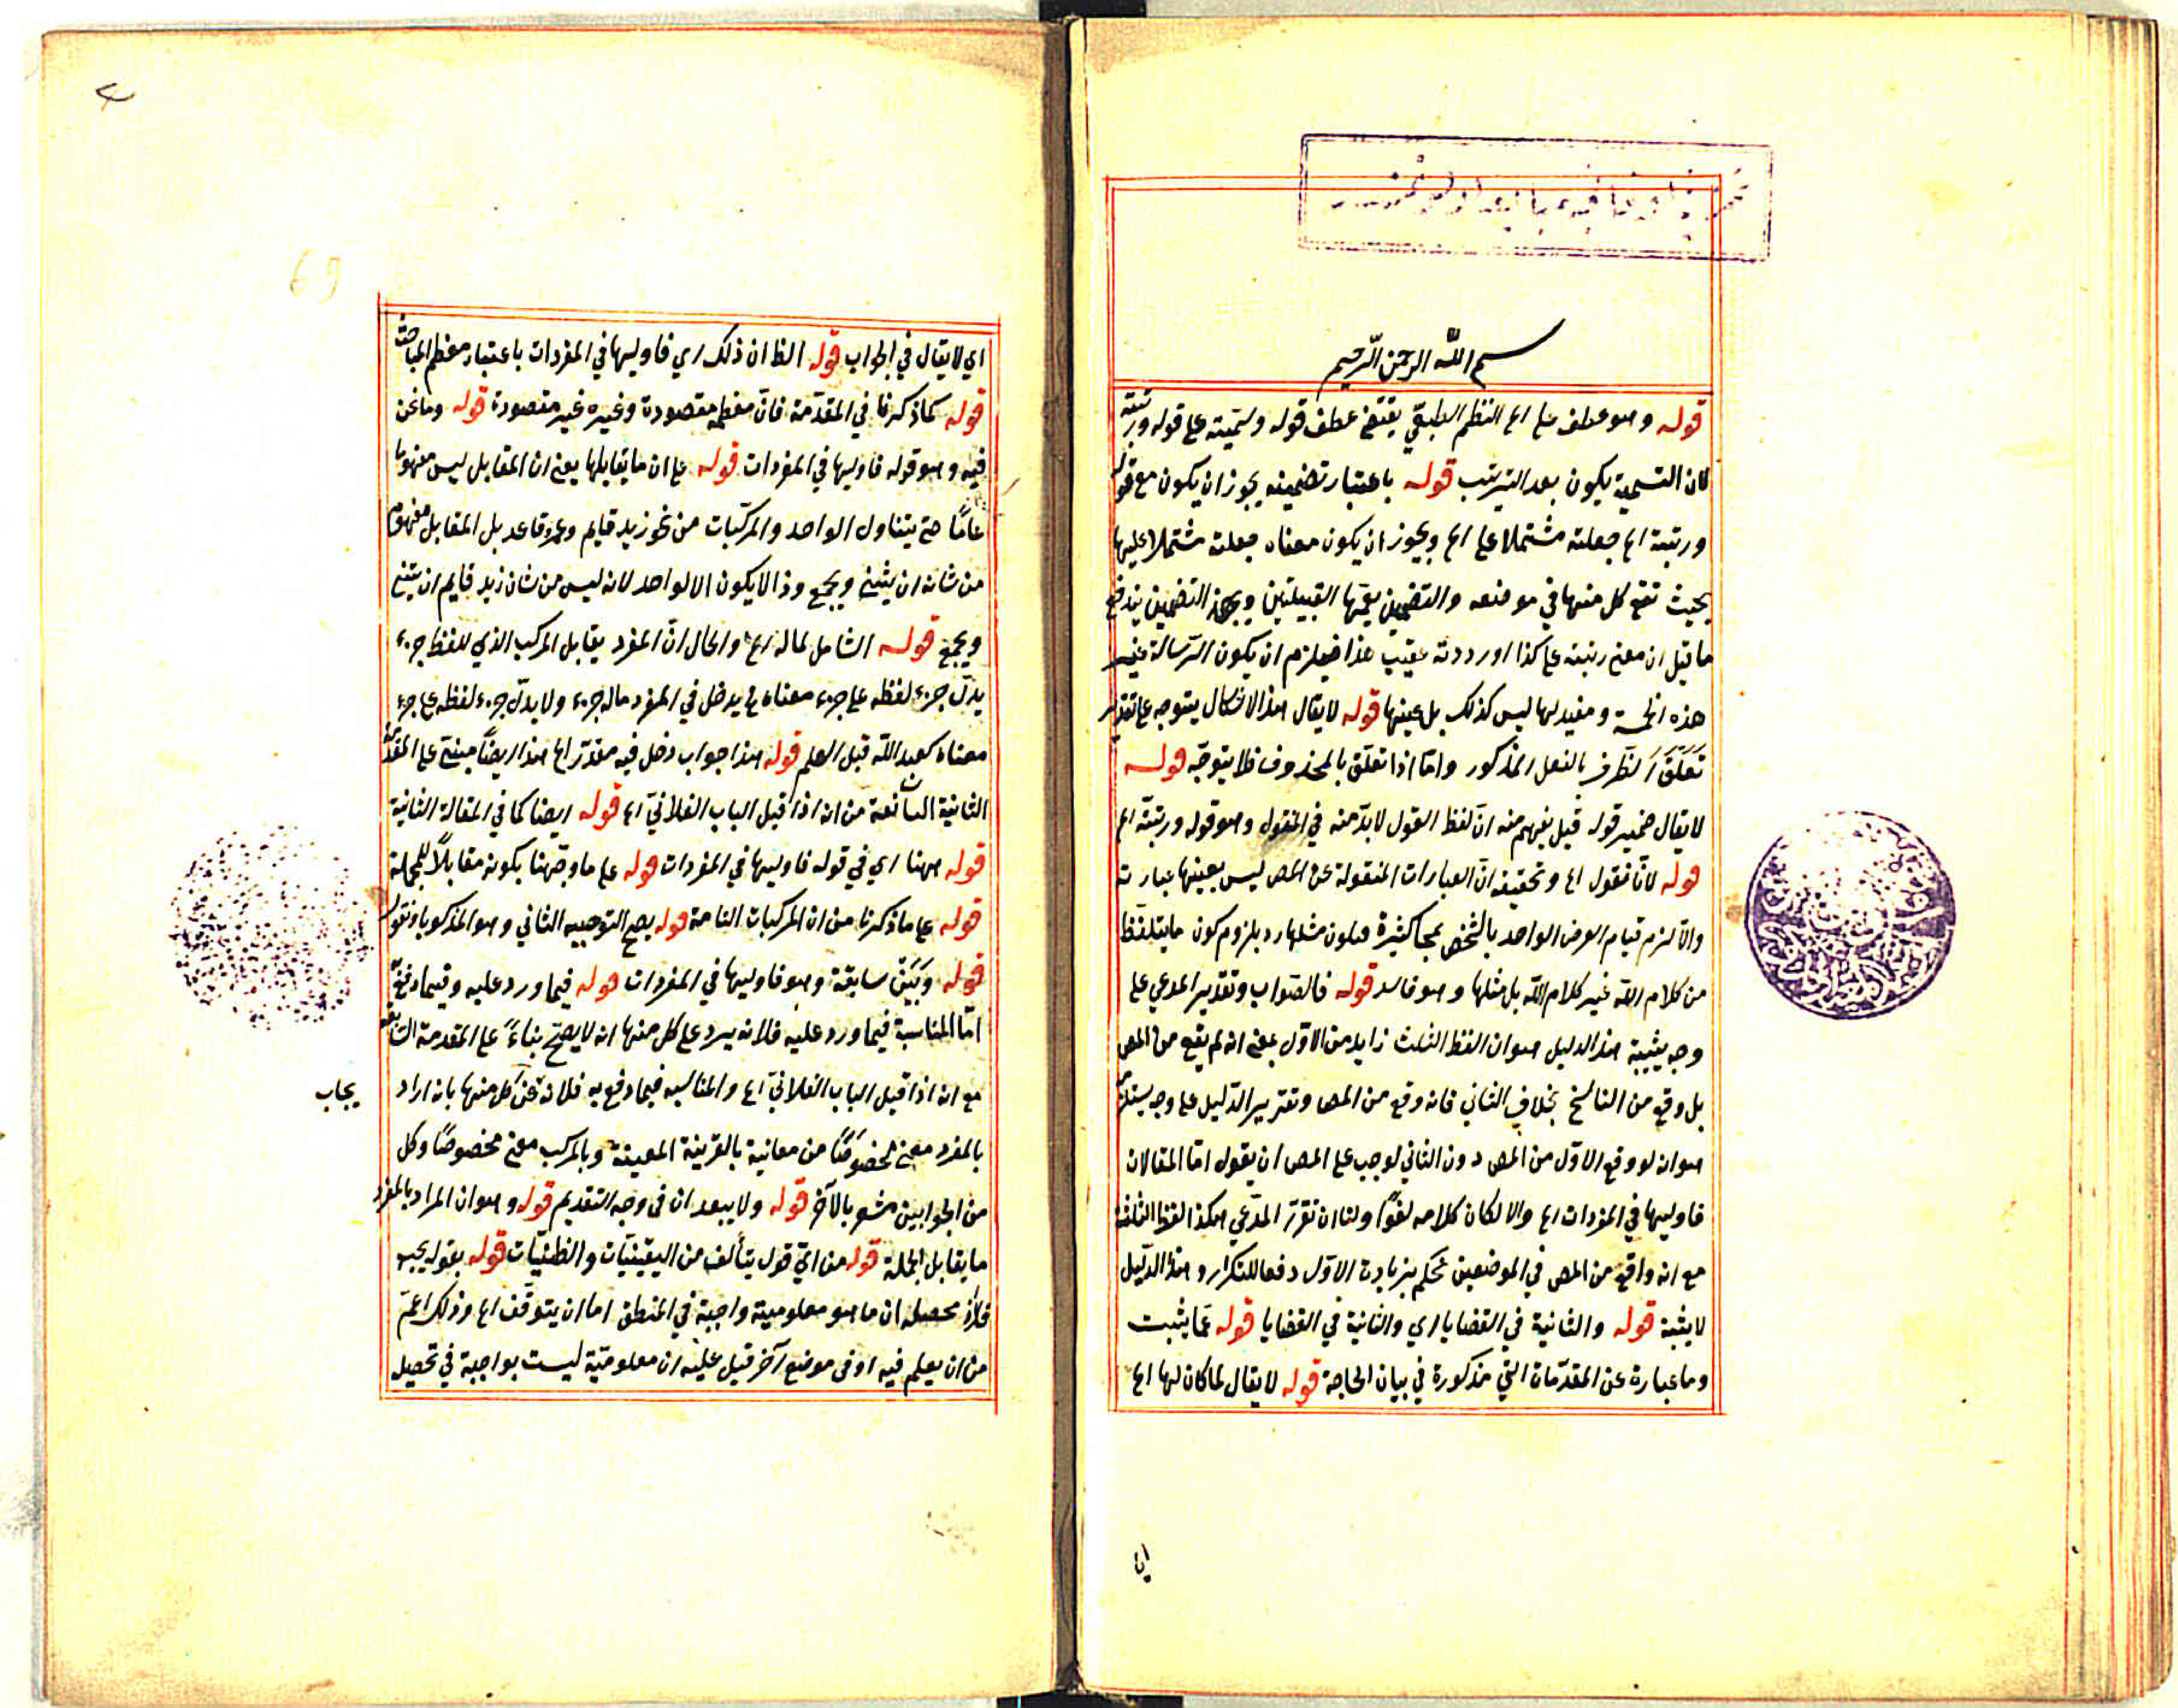 بسم الله الرحمن الرحيم
قوله وهو عطف على اه النظم الطبقي يقتضي عطف قوله وسميته على قوله ورتبته
لان التسمية يكون بعد الترتيب قوله باعتبار تضمينه يجوز ان يكون مع قوله
ورتبته اه جعلته مشتملا على اه ويجوز ان يكون معناه جعلته مشتملا عليها
بحيث تقع كل منها في موضعه والتضمين يعمها القبيلتين وبهذا التضمين يندفع
ما قيل ان معنى رتبته على كذا اوردته عقيب هذا فيلزم ان يكون الرسالة غير
هذه الخمسة ومفيد لها ليس كذلك بل عينها قوله لا يقال هذا الاشكال يتوجه على تقدير
تعلق الظرف بالفعل المذكور واما اذا تعلق بالمحذوف فلا يتوجه قوله
لا يقال ضمير قوله قيل يفهم منه ان لفظ القول لا بد منه في المقول وهو قوله ورتبته اه
قوله لانا نقول اه وتحقيقه ان العبارات المنقولة عن المص ليس بعينها عبارته
والا لزم قيام العرض الواحد بالشخص بمحال كثيرة فيكون مثلها رد بلزوم كون ما يتلفظ
من كلام الله غير كلام الله بل مثلها وهو فاسد قوله فالصواب وتقدير المدعي على
وجه يثبته هذا الدليل هو ان لفظ الثلث زايد من الاول بمعنى انه لم يقع من المص
بل وقع من الناسخ بخلاف الثاني فانه وقع من المص وتقرير الدليل على وجه يستلزم
هو انه لو وقع الاول من المص دون الثاني لوجب على المص ان يقول اما المقالات
فاوليها في المفردات اه والا لكان كلامه لغوا ولنا ان نقرر المدعي هكذا لفظ الثلث
مع انه واقع من المص في الموضعين نحكم بزيادة الاول دفعا للتكرار وهذا الدليل
لا يثبته قوله والثانية في القضايا اي والثانية في القضايا قوله عما يثبت
وما عبارة عن المقدمات التي مذكورة في بيان الحاجة قوله لا يقال لما كان لها اه
اي
اي لا يقال في الجواب قوله الظ ان ذلك اي فاوليها في المفردات باعتبار معظم المباحث
قوله كما ذكرنا في المقدمة فان معظمه مقصودة وغيره غير مقصودة قوله وما نحن
فيه وهو قوله فاوليها في المفردات قوله على ان ما يقابلها يعني ان المقابل ليس مفهوما
عاما حتى يتناول الواحد والمركبات من نحو زيد قايم وعمرو قاعد بل المقابل مفهوم
من شانه ان يثنى ويجمع وذا لا يكون الا لواحد لانه ليس من شان زيد قايم ان يثنى
ويجمع قوله الشامل لماله اه والحال ان المفرد يقابل المركب الذي للفظ جزء
يدل جزء لفظه على جزء معناه فح يدخل في المفرد ماله جزء ولا يدل جزء لفظه على جزء
معناه كعبد الله قبل العلم قوله هذا جواب دخل فيه مقدر اه هذا ايضا مبني على المقدمة
الثانية الشائعة من انه اذا قيل الباب الفلاني اه قوله ايضا كما في المقالة الثانية
قوله ههنا اي في قوله فاوليها في المفردات قوله على ما وجهنا بكونه مقابلا للجملة
قوله على ما ذكرنا من ان المركبات التامة قوله يصح التوجيه الثاني وهو المذكور باو نقول
قوله وبين سابقة وهو فاوليها في المفردات قوله فيما ورد عليه وفيما دفع
اما المناسبة فيما ورد عليه فلانه يرد على كل منها انه لا يصح بناء على المقدمة السابقة
مع انه اذا قيل الباب الفلاني اه والمناسبه فيما دفع به فلانه عن كل منها بانه اراد
يجاب
بالمفرد معنى مخصوصا من معانية بالقرينة المعينة وبالمركب معنى مخصوصا وكل
من الجوابين مشعر بالآخر قوله ولا يبعد ان في وجه التقديم قوله وهو ان المراد بالمفرد
ما يقابل الجملة قوله من اي قول يتألف من اليقينيات والظنيات قوله بقوله يجب
فلان محصله ان ما هو معلوميته واجبة في المنطق اما ان يتوقف اه وذلك اعم
من ان يعلم فيه او في موضع آخر قيل عليه ان معلوميته ليست بواجبة في تحصيل